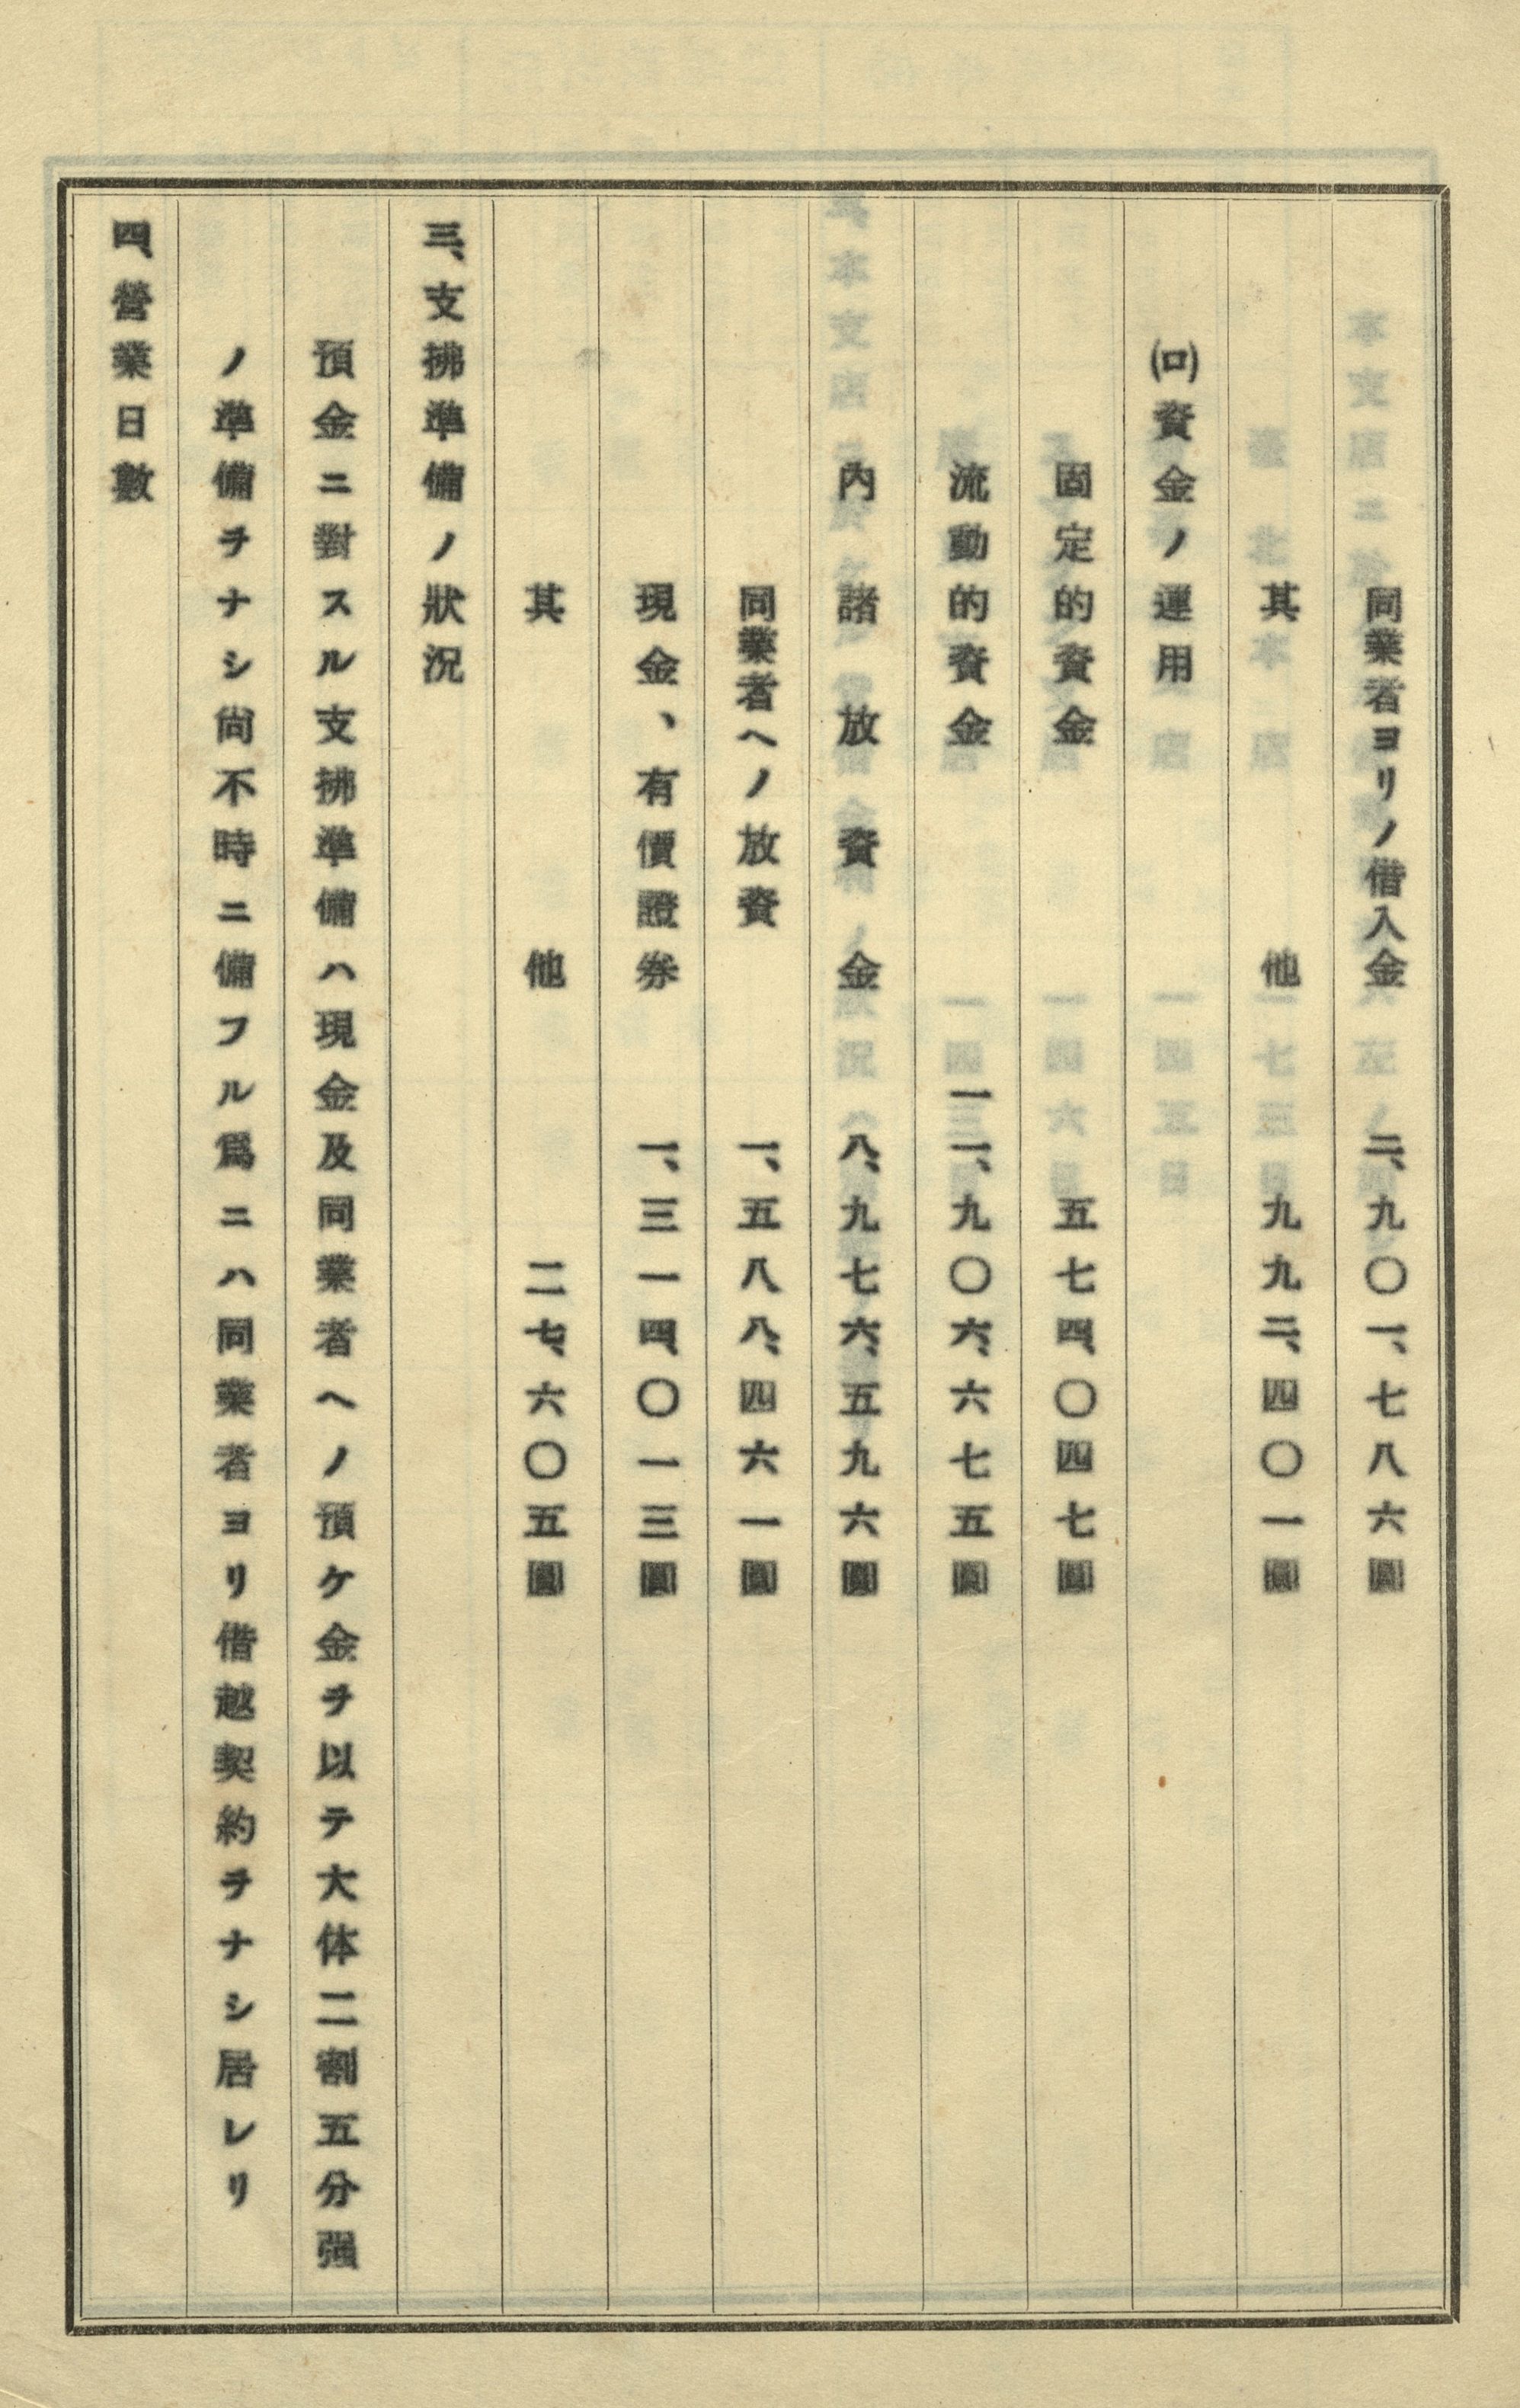 同業者ヨリノ借入金 二、九〇一、七八六圓
其他 九九二、四〇一圓
(ロ)資金ノ運用
固定的資金 五七四、〇四七圓
流動的資金 一一、九〇六、六七五圓
內諸放資金 八、九七六、五九六圓
同業者ヘノ放資 一、五八八、四六一圓
現金、有價證券 一、三一四、〇一三圓
其他 二七、六〇五圓
三、支拂準備ノ狀況
預金ニ對スル支拂準備ハ現金及同業者ヘノ預ケ金ヲ以テ大体二割五分强
ノ準備ヲナシ尙不時ニ備フル爲ニハ同業者ヨリ借越契約ヲナシ居レリ
四、營業日數